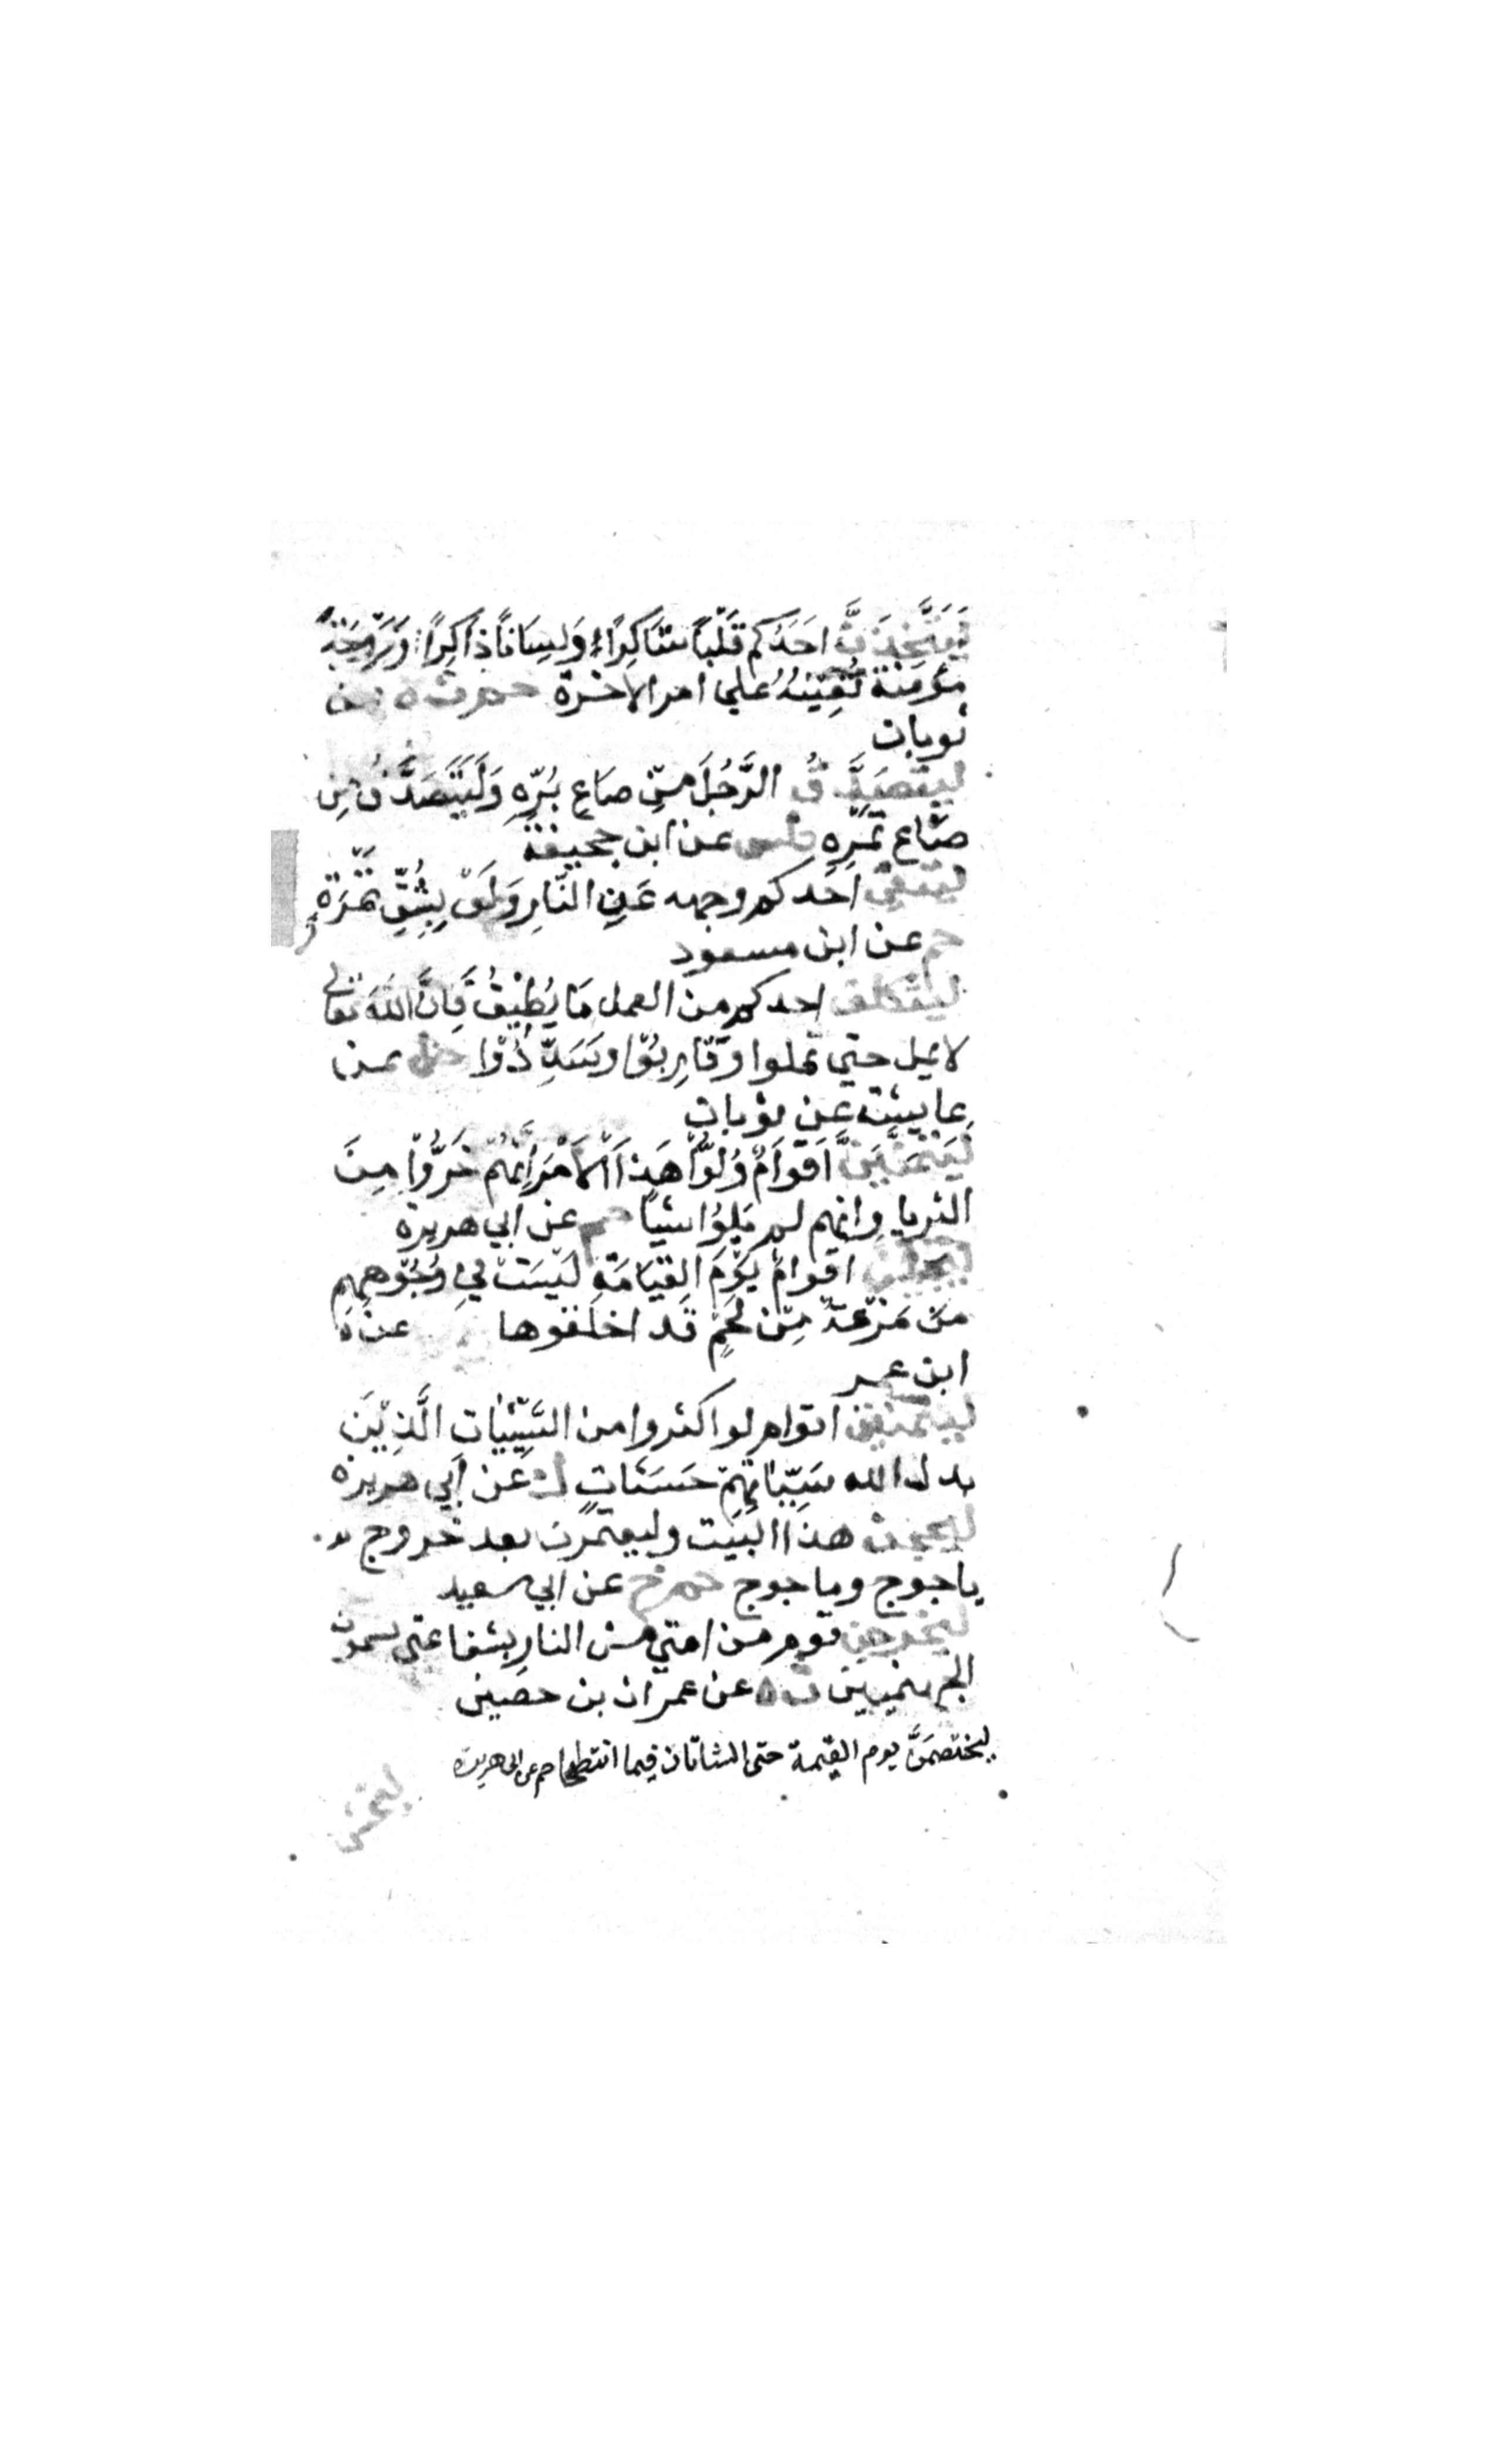 لَيَتَّخِذَنَّ اَحَدُكُم قَلْبًا شَاكِرًا وَلِسَانًا ذَاكِرًا وَزَوْجَةً
مؤمنة تُعِينُهُ علي امر الاخرة حم ت ه عن
ثوبان
ليتصدَّقُ الرَّجُلَ مِن صَاعِ بُرِّهِ وَلْيَتَصَدَّقْ مِن
صَاع تمْرِهِ طس عن ابن جحيفة
ليتقي اَحدكم وجهه عَنِ النَّارِ وَلَوْ بِشِقِّ تَمْرَةٍ
حم عن ابن مسعود
ليتكلف احدكم من العمل مَا يُطِيْقُ فَاِنَّ اللّٰهَ تعالى
لا يمل حتي تملوا وَقَارِبُوْا وسَدِّدُوْا حل عن
عايشة عن ثوبان
لَيَتَمَنَّيَنَّ اَقْوَامٌ وُلُوْا هَذَا الْاَمْرَ اَنَّهُمْ خَرُّوْا مِنَ
الثريا وانهم لم يَلُوْا شيًا حم عن ابي هريرة
اقوامٌ يَوْمَ القِيَامَةِ لَيْسَتْ فِي وُجُوْهِهِمِ
مَن مَزْعَة مِّن لَحْمٍ قَد اخلقوها عن
ابن عمر
ليتمنين اقوام لو اكثروا من السَّيِّئَاتِ الَّذِيْنَ
بدل الله سَيِّئَاتِهِمْ حَسَنَاتٍ ك عَن اَبي هريرة
ليحجن هذَا البَيْت وليعتمرن بعد خروج
ياجوج وماجوج حم خ عن ابي سعيد
ليخرجن قوم من امتي من النار بشفاعتي يسمون
الجهنميين ت ه عن عمرَان بن حصين
ليختصمَنَّ يوم القيمة حتى الشاتان فيما انتطحا حم عن ابى هريرة